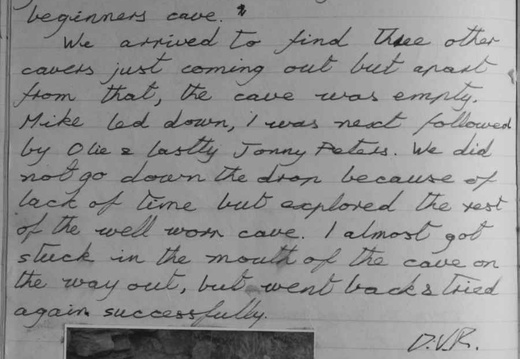 beginners cave.
We arrived to find three other
cavers just coming out but apart
from that, the cave was empty.
Mike led down, I was next followed
by Olie & lastly Jonny Peters. We did
not go down the drop because of
lack of time but explored the rest
of the well worn cave. I almost got
stuck in the mouth of the cave on
the way out, but went back & tried
again successfully.
D.V.R.